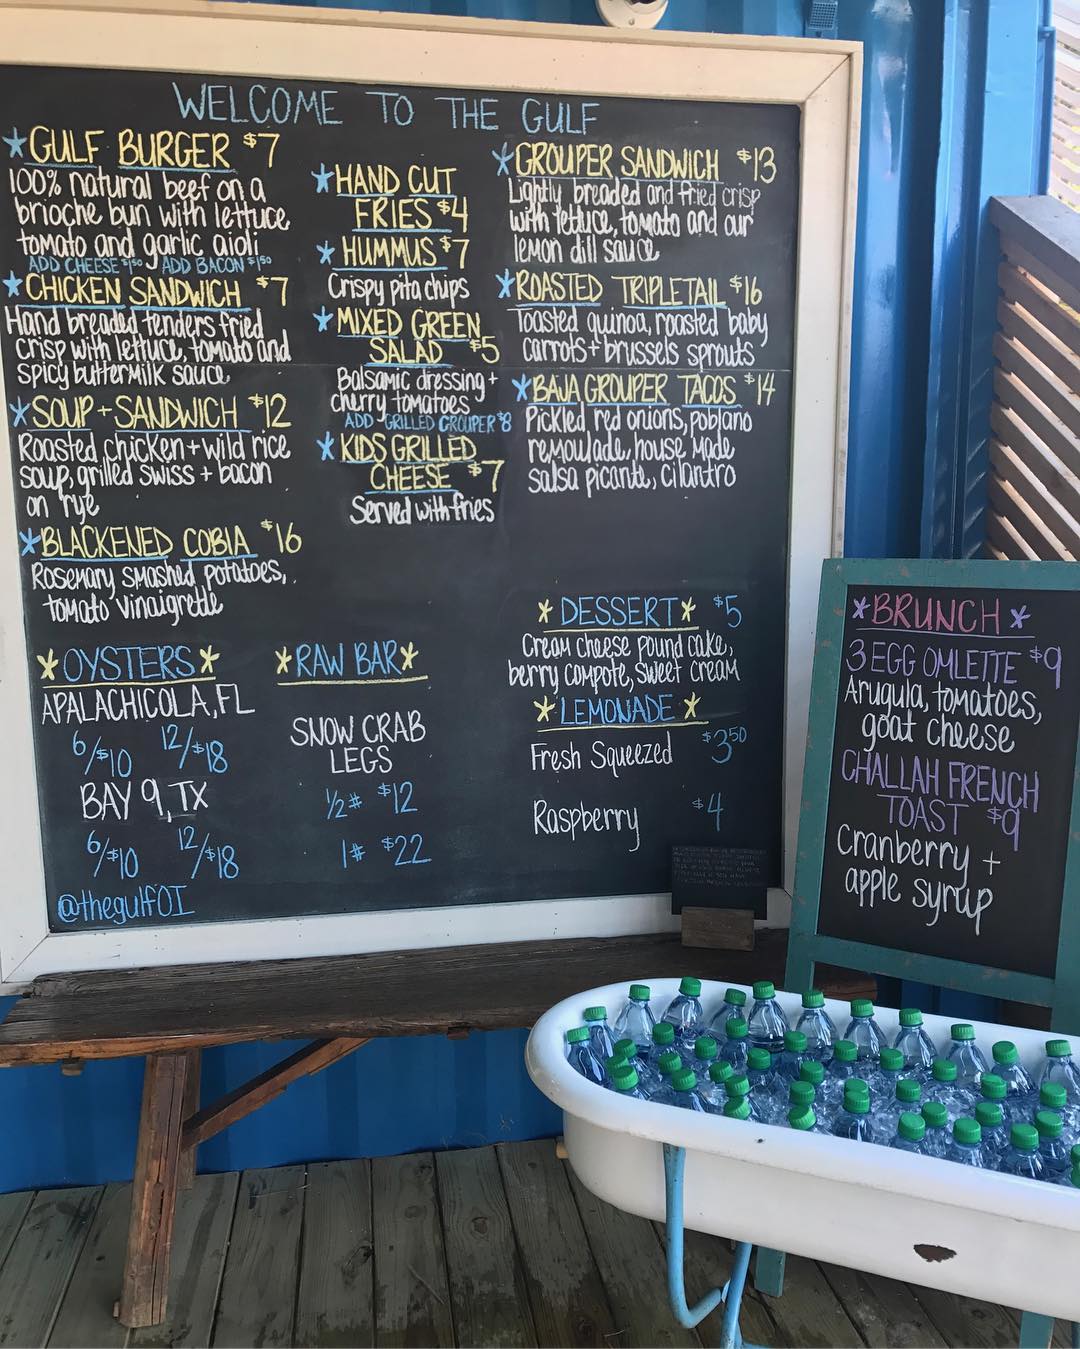 WELCOME TO THE GULF
*GULF BURGER $7
100% natural beef on a
brioche bun with lettuce
tomato and garlic aioli
ADD CHEESE $1.50 ADD BACON $1.50
*CHICKEN SANDWICH $7
Hand breaded tenders fried
crisp with lettuce, tomato and
spicy buttermilk sauce
*SOUP + SANDWICH $12
Roasted chicken + wild rice
soup, grilled swiss + bacon
on rye
*BLACKENED COBIA $16
Rosemary smashed potatoes,
tomato vinaigrette
*HAND CUT
FRIES $4
*HUMMUS $7
Crispy pita chips
*MIXED GREEN
SALAD $5
Balsamic dressing +
cherry tomatoes
ADD GRILLED GROUPER $8
*KIDS GRILLED
CHEESE $7
Served with fries
*GROUPER SANDWICH $13
Lightly breaded and fried crisp
with lettuce, tomato and our
lemon dill sauce
*ROASTED TRIPLETAIL $16
Toasted quinoa, roasted baby
carrots + brussels sprouts
*BAJA GROUPER TACOS $14
Pickled red onions, poblano
remoulade, house made
salsa picante, cilantro
*OYSTERS*
APALACHICOLA, FL
6/$10 12/$18
BAY 9, TX
6/$10 12/$18
@thegulfOI
*RAW BAR*
SNOW CRAB
LEGS
1/2# $12
1# $22
*DESSERT* $5
Cream cheese pound cake,
berry compote, sweet cream
*LEMONADE*
Fresh Squeezed $3.50
Raspberry $4
*BRUNCH*
3 EGG OMLETTE $9
Arugula, tomatoes,
goat cheese
CHALLAH FRENCH
TOAST $9
Cranberry +
apple syrup